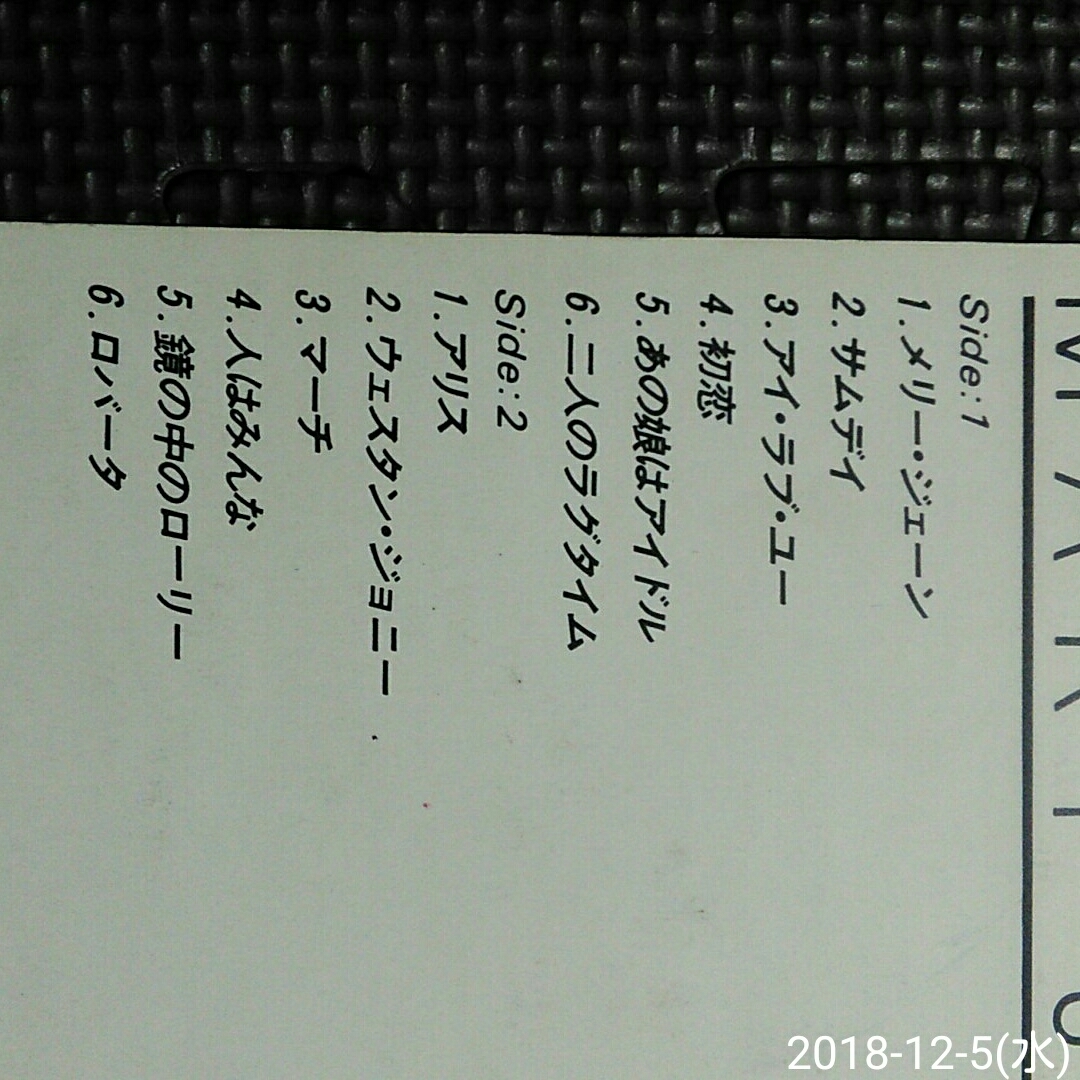 Side:1
1.メリー・ジェーン
2.サムデイ
3.アイ・ラブ・ユー
4.初恋
5.あの娘はアイドル
6.二人のラグタイム
Side:2
1.アリス
2.ウェスタン・ジョニー
3.マーチ
4.人はみんな
5.鏡の中のローリー
6.ロバータ
2018-12-5(水)